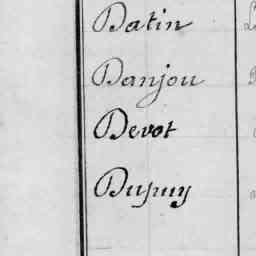 Datin
Danjou
Devot
Dupuy